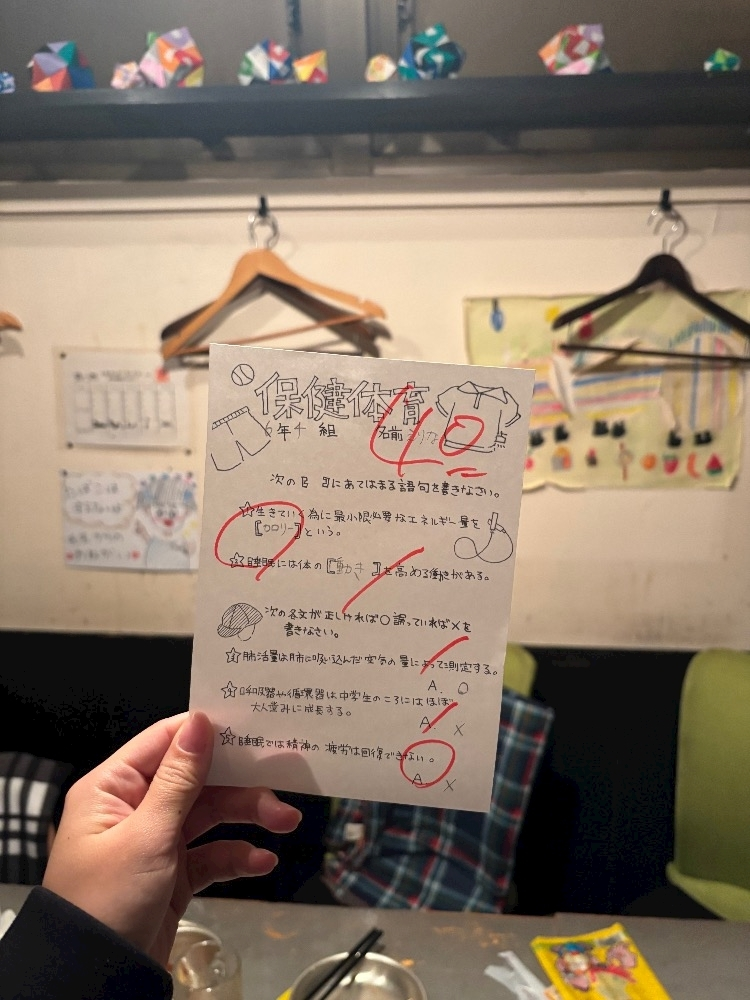 保健体育
6年4組 名前
40点
次の〖 〗にあてはまる語句を書きなさい。
☆1生きていく為に最小限必要なエネルギー量を
〖カロリー〗という。
☆2睡眠には体の〖動き〗を高める働きがある。
次の各文が正しければ〇誤っていれば×を
書きなさい。
☆3肺活量は肺に吸い込んだ空気の量によって測定する。
A. 〇
☆4呼吸器や循環器は中学生のころにはほぼ
大人並みに成長する。
A. ×
☆5睡眠では精神の疲労は回復できない。
A ×